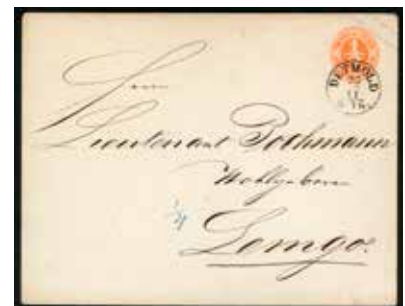 DETMOLD
Herrn
Lieutenant Pothmann
Wohlgeboren
Lemgo.